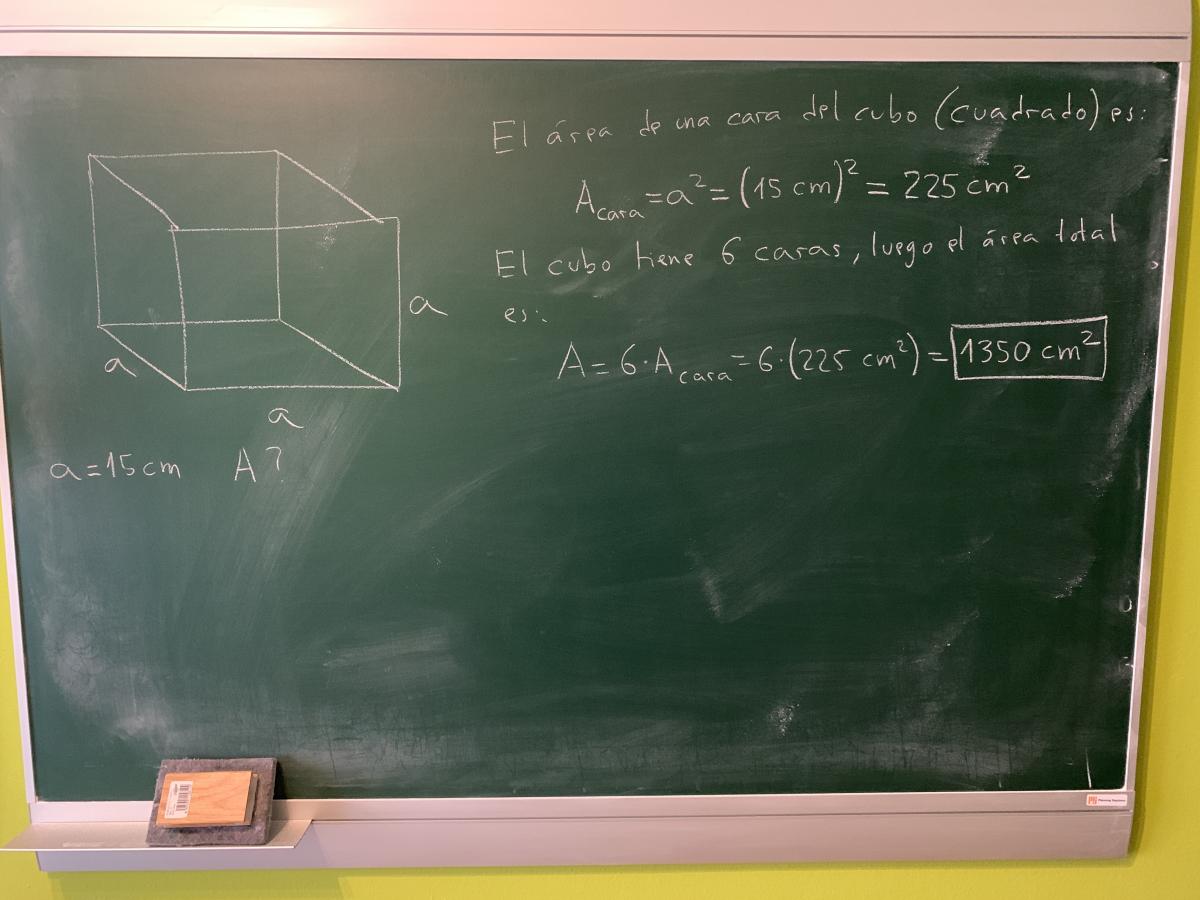 El área de una cara del cubo (cuadrado) es:
A_cara = a² = (15 cm)² = 225 cm²
El cubo tiene 6 caras, luego el área total
es:
A = 6·A_cara = 6·(225 cm²) = 1350 cm²
a
a
a
a = 15 cm A?